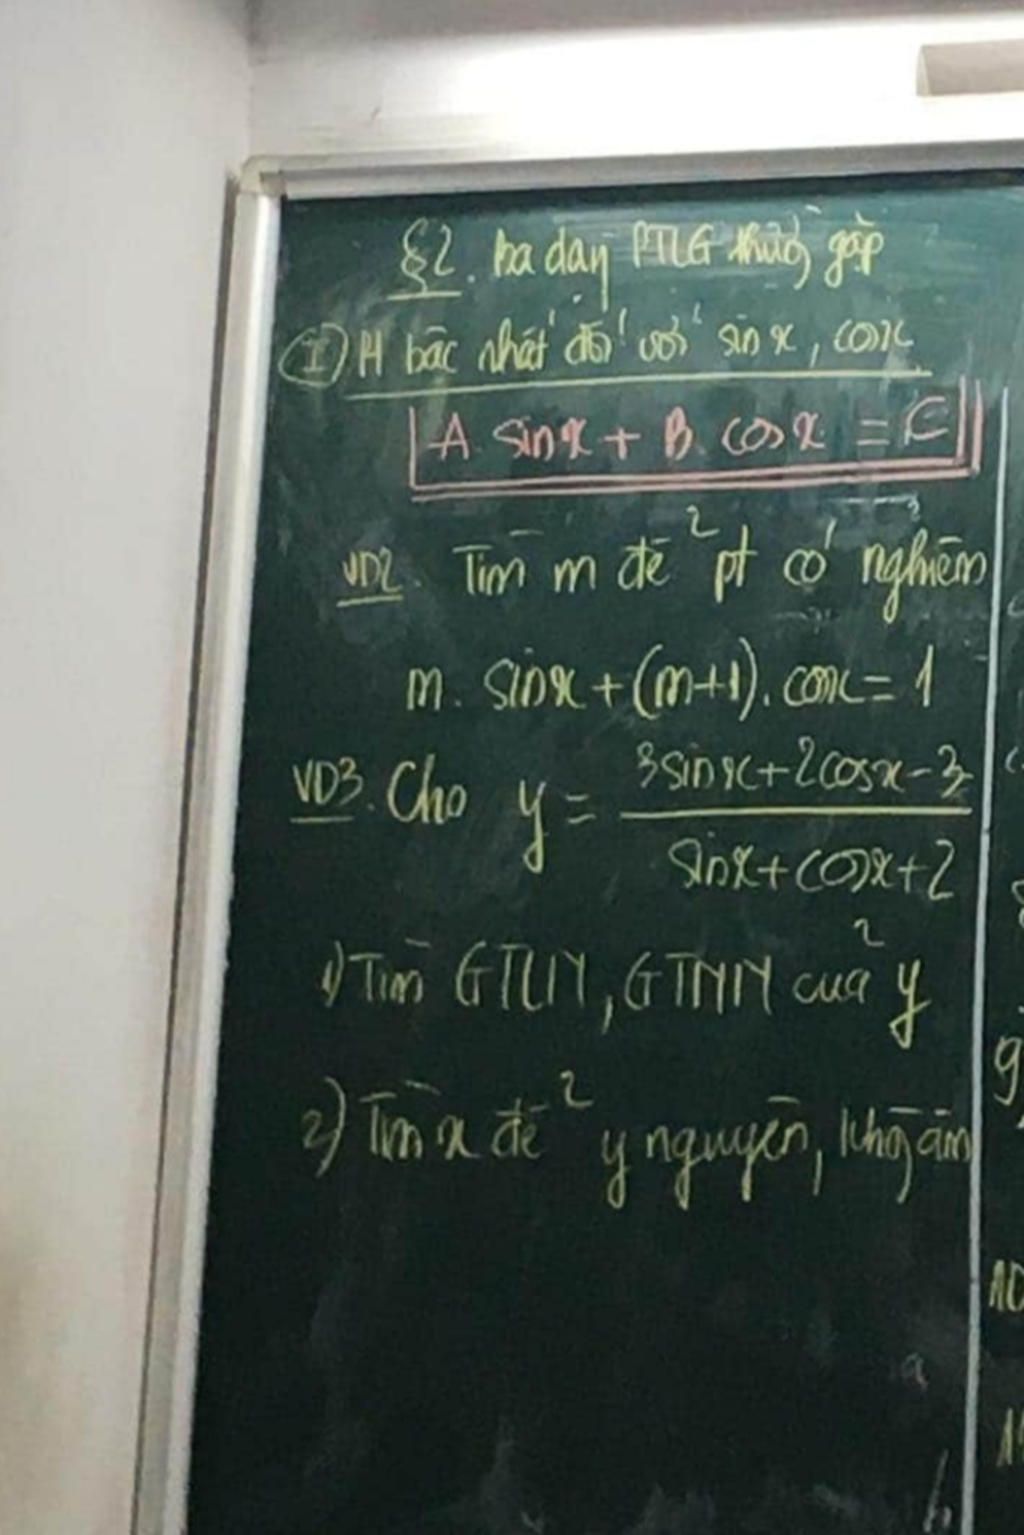 §2. ba dạng PTLG thường gặp
I) Pt bậc nhất đối với sinx, cosx
A. sinx + B. cosx = C
VD2. Tìm m để pt có nghiệm
m. sinx + (m+1). cosx = 1
VD3. Cho y = (3sinx + 2cosx - 3) / (sinx + cosx + 2)
1) Tìm GTLN, GTNN của y
2) Tìm x để y nguyên, không âm